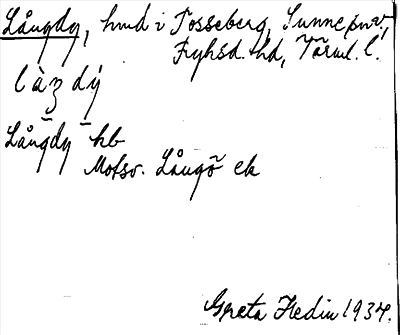 Långdy, hmd i Tosseberg, Sunne sn,
Fryksd. hd, Värml. l.
Långdy hb
Motsv. Långö ek
Greta Hedin 1934.